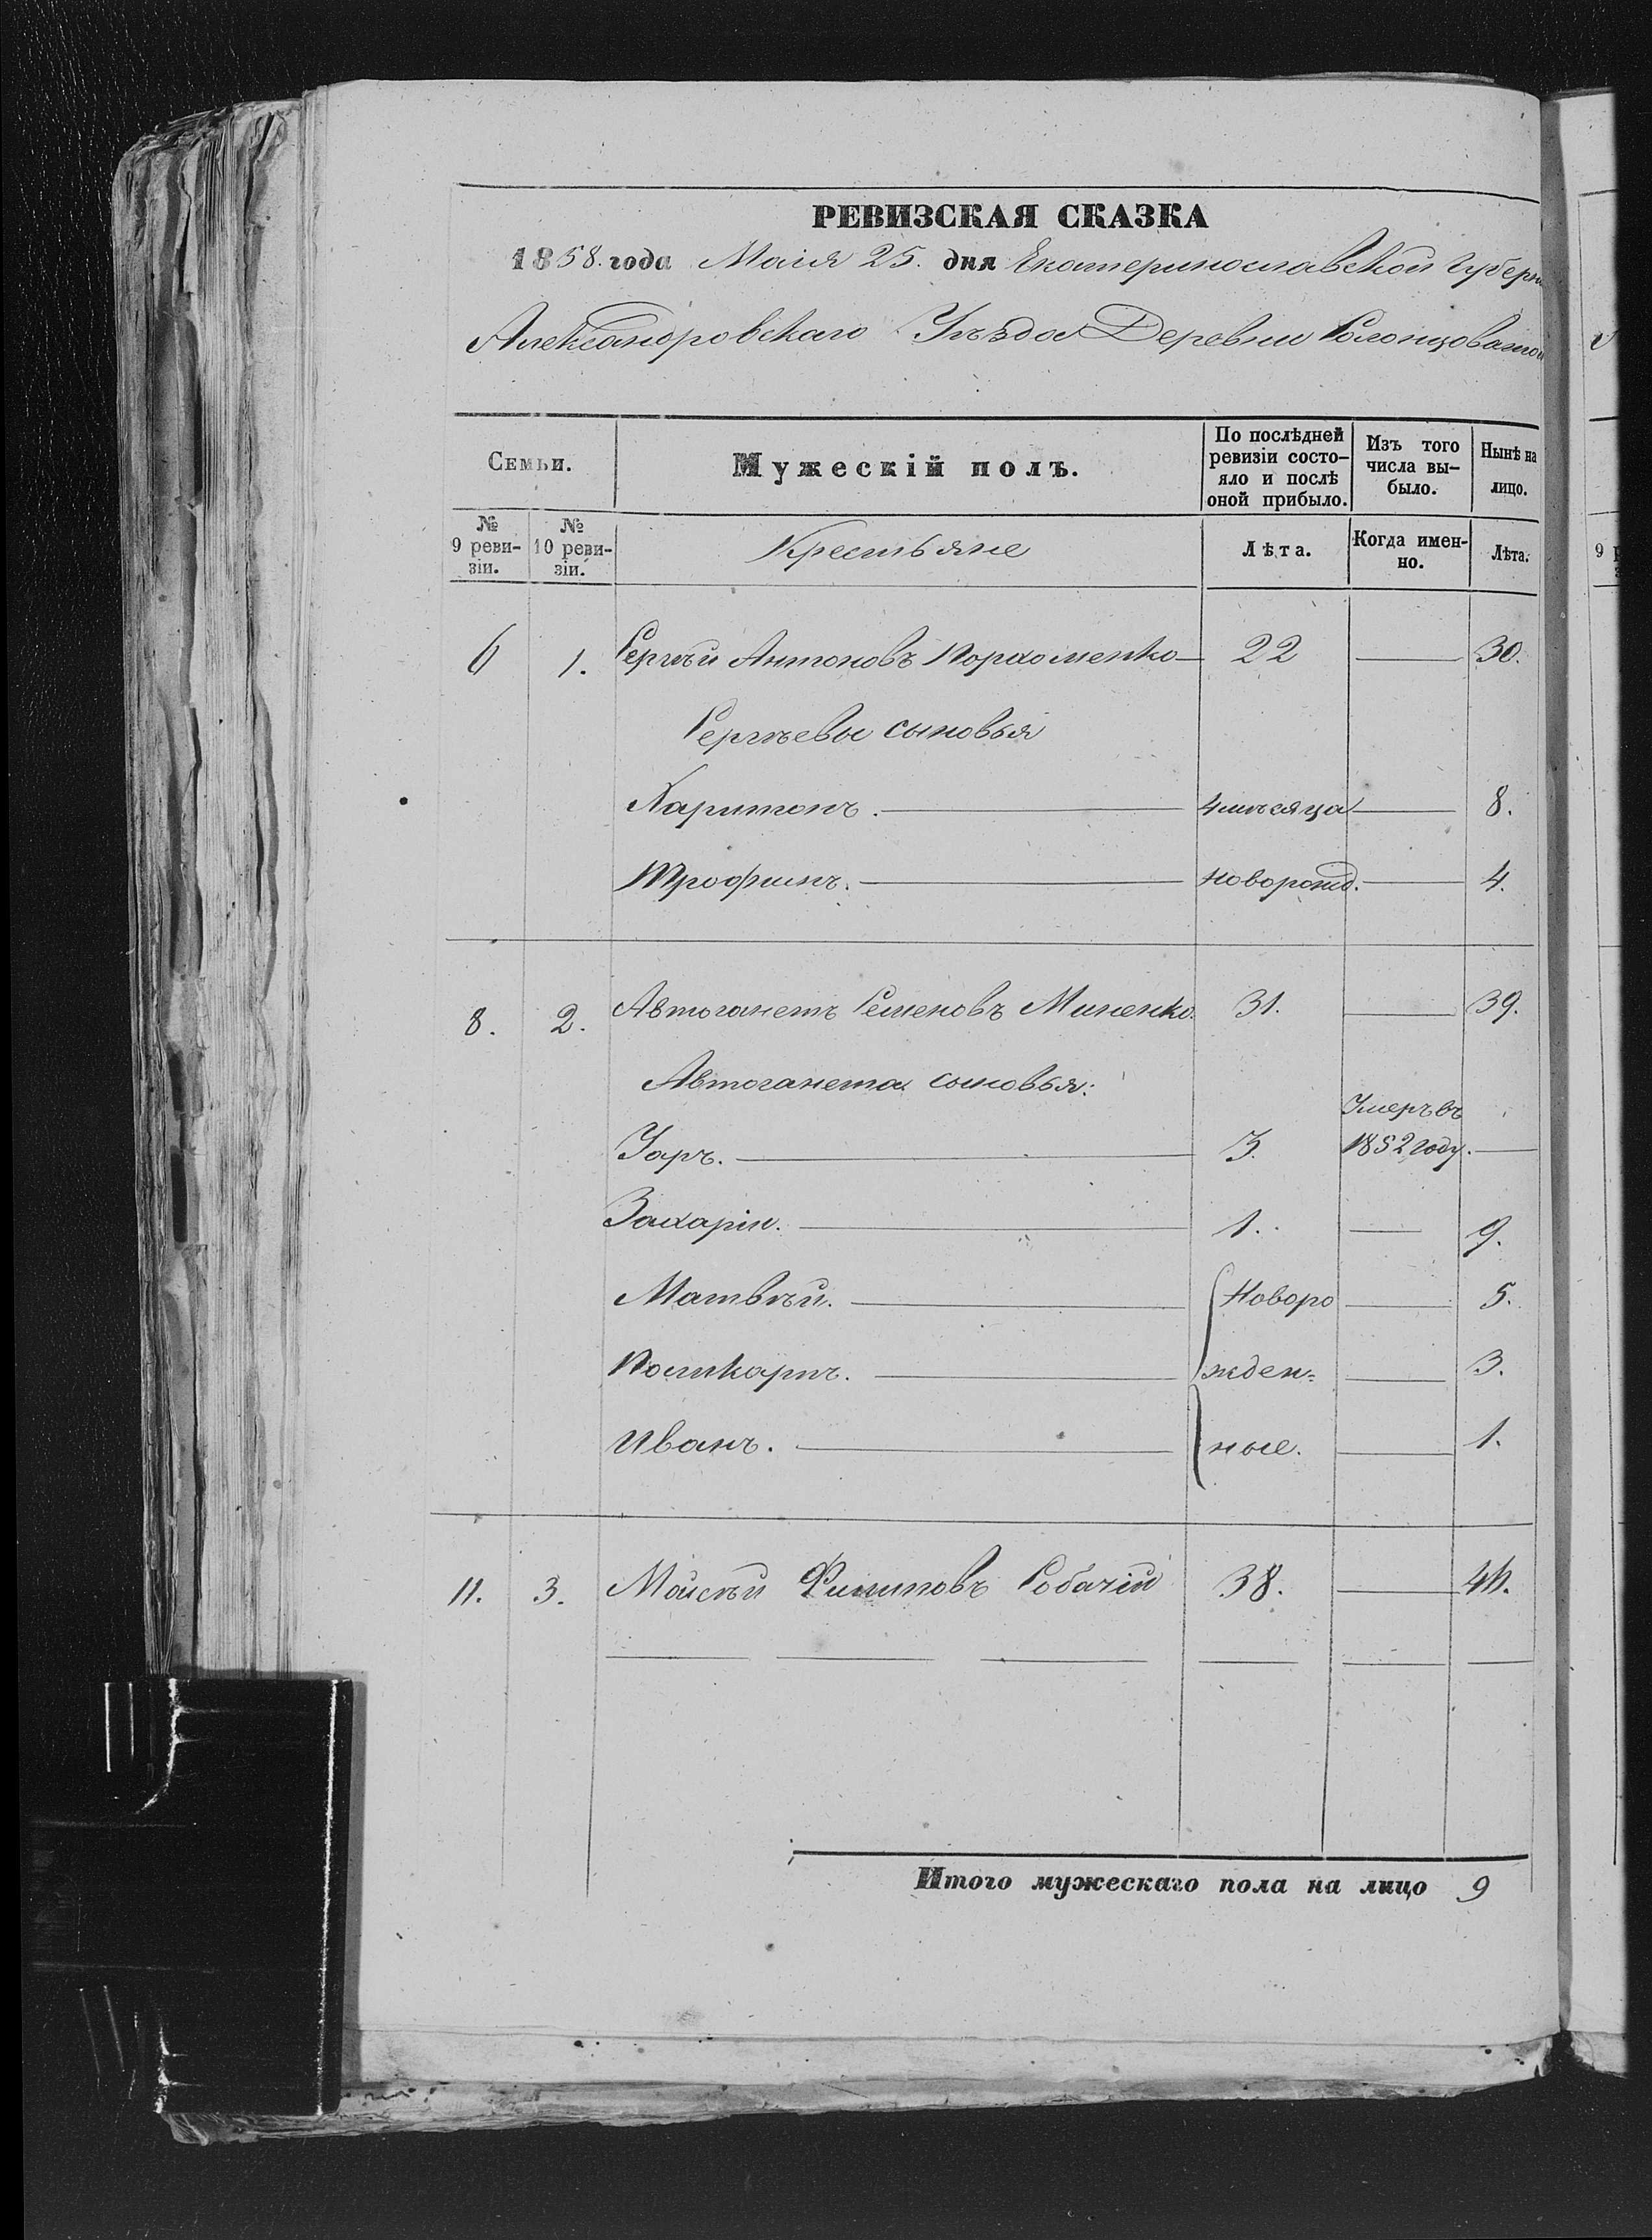 РЕВИЗСКАЯ СКАЗКА
1858. года Маія 25. дня Екатеринославской Губерн
Александровскаго Уѣзда Деревни Солонцоватой
Семьи.
Мужескій полъ.
По послѣдней ревизіи состо-яло и послѣ оной прибыло.
Изъ того числа вы-было.
Нынѣ на лицо.
№ 9 реви-зіи.
№ 10 реви-зіи.
Крестьяне
Лѣта.
Когда имен-но.
Лѣта.
6 1. Сергѣй Антоновъ Порхоменко 22 30.
Сергѣевы сыновья
Харитонъ. 4 мѣсяца 8.
Трофимъ. новорожд. 4.
8. 2. Автоганетъ Семеновъ Миненко. 31. 39.
Автоганета сыновья:
Умеръ въ
Уаръ. 3. 1852 году.
Захарій. 1. 9.
Матвѣй. Новоро 5.
Поликарпъ. жден= 3.
Иванъ. ные. 1.
11. 3. Мойсѣй Филиповъ Собачій 38.
Итого мужескаго пола на лицо 9